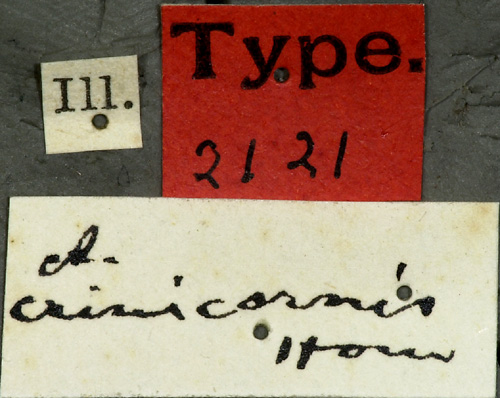 Ill.
Type.
2121
A.
crinicornis
Horn